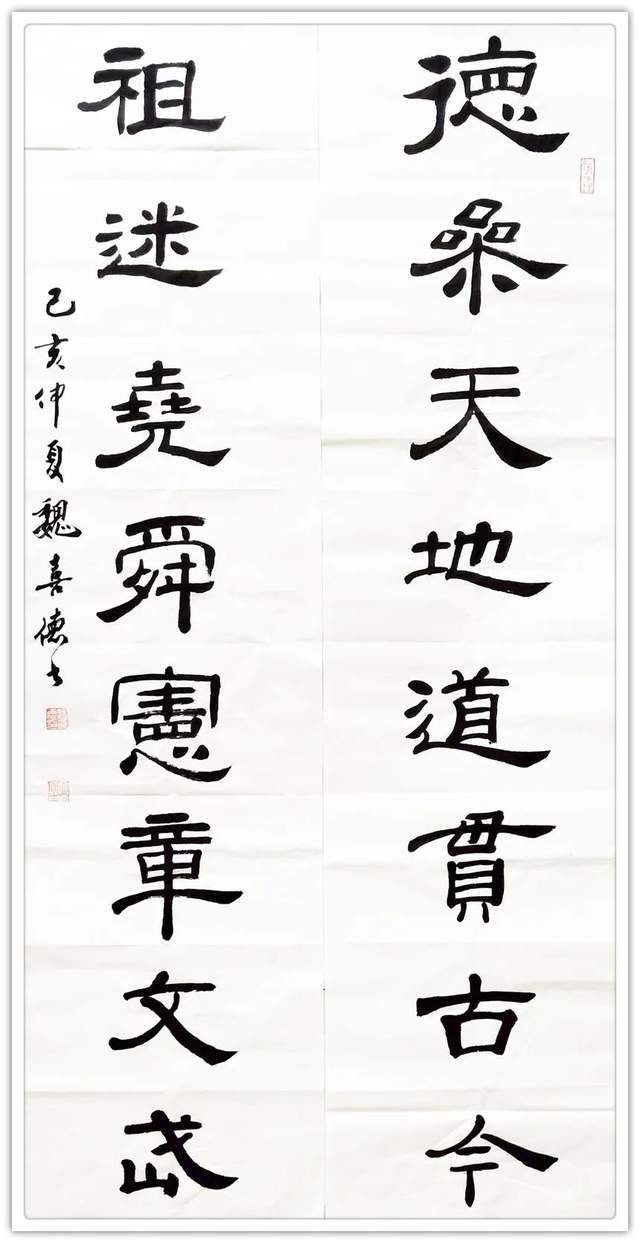 德參天地道貫古今
祖述堯舜憲章文武
己亥仲夏魏喜德书